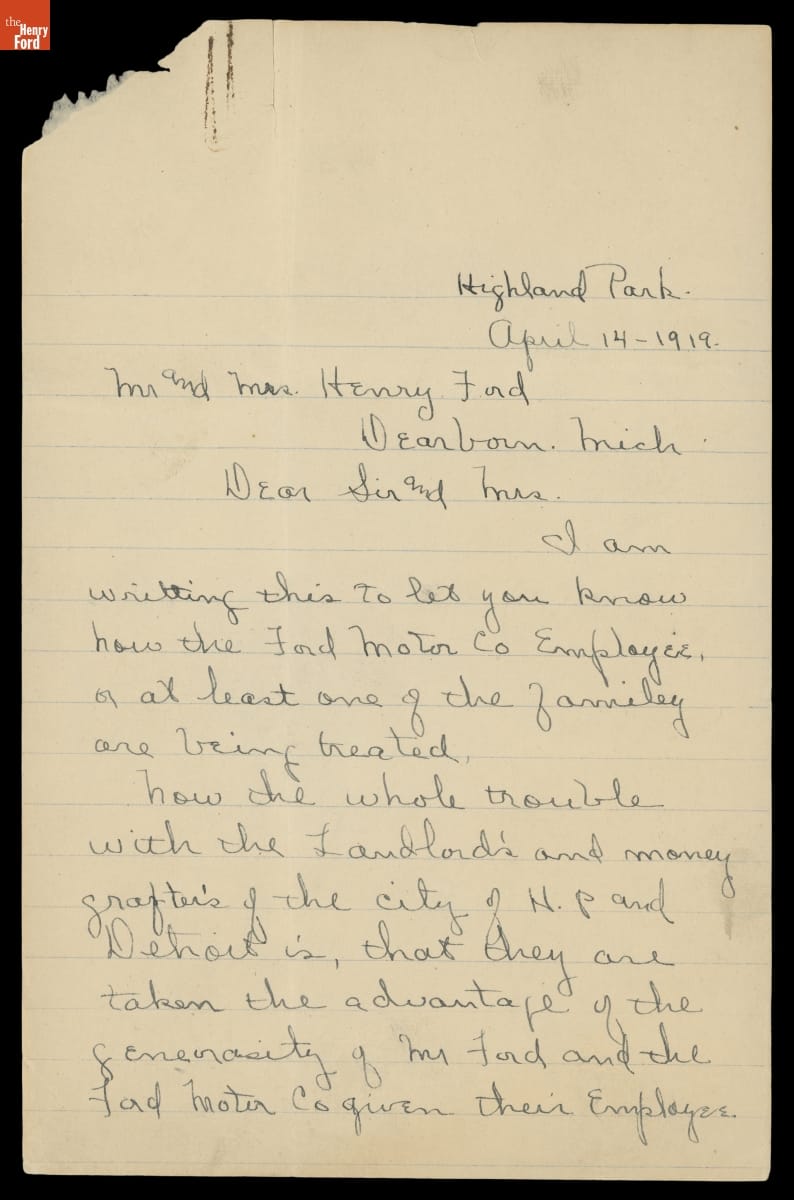 the
Henry
Ford
Highland Park.
April 14-1919.
Mr and Mrs. Henry Ford
Dearborn. Mich
Dear Sir and Mrs.
I am
writting this to let you know
how the Ford Motor Co Employee,
or at least one of the familey
are being treated,
now the whole trouble
with the Landlord's and money
grafter's of the city of H. P and
Detroit is, that they are
taken the advantage of the
generasity of Mr Ford and the
Ford Motor Co given their Employee.